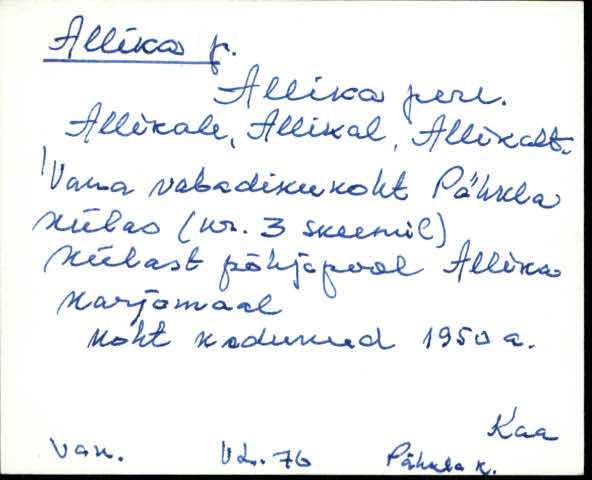 Allika p.
Allika pere.
Allikale, Allikal, Allikalt.
Vana vabadikukoht Pähkla
külas (nr. 3 skeemil)
Külast põhjapool Allika
karjamaal
Koht kadunud 1950 a.
Kaa
Van. VL. 76 Pähkla k.